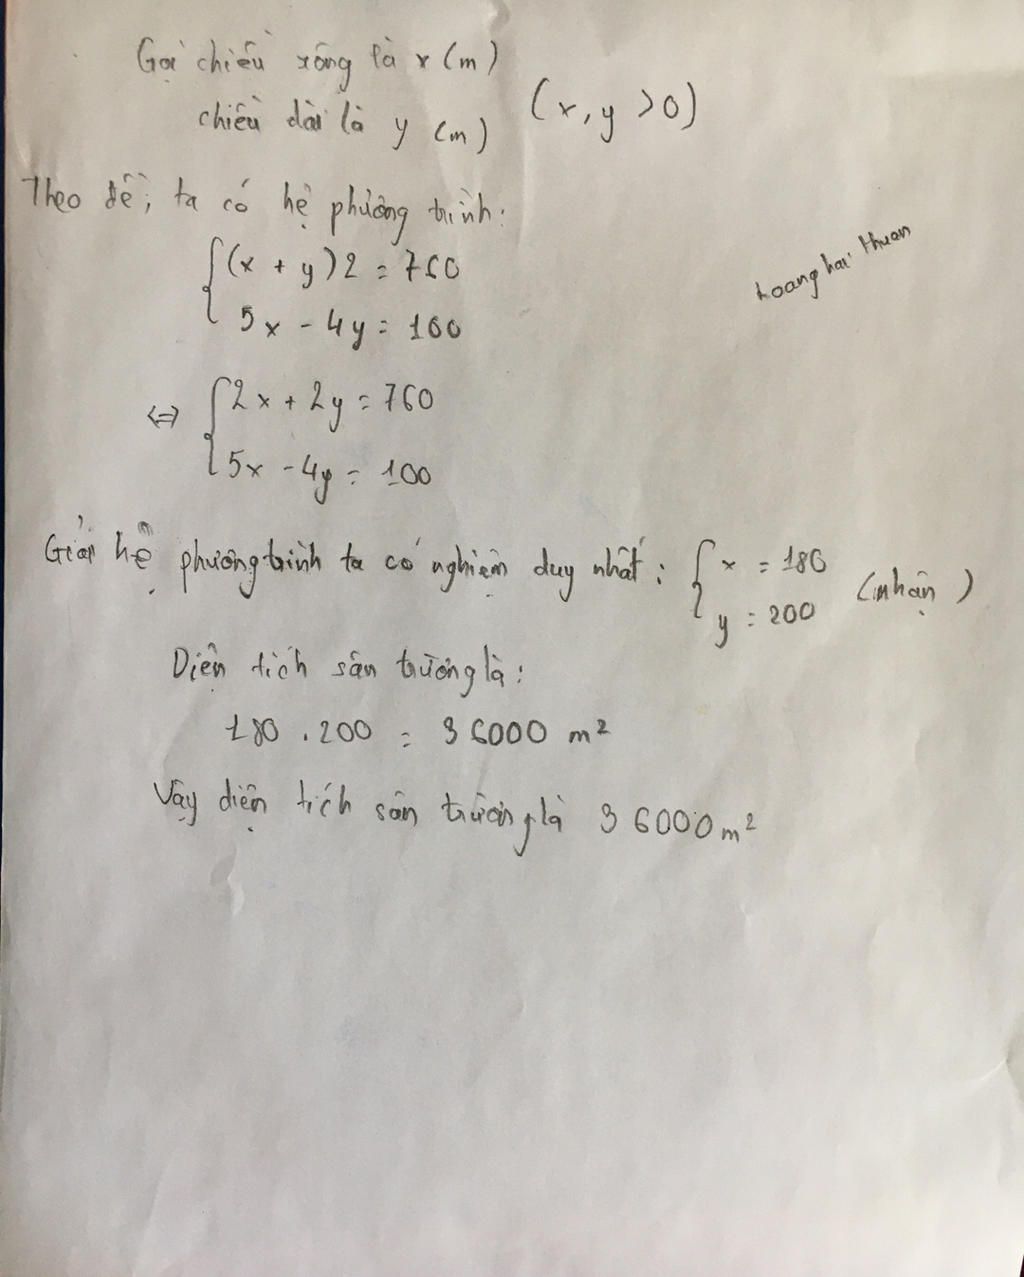 Gọi chiều rộng là x (m)
chiều dài là y (m) (x, y > 0)
Theo đề, ta có hệ phương trình:
(x + y) 2 = 760
5x - 4y = 100
hoang hai thuan
⇔ 2x + 2y = 760
5x - 4y = 100
Giải hệ phương trình ta có nghiệm duy nhất: x = 180
y = 200 (nhận)
Diện tích sân trường là:
180 . 200 = 36000 m²
Vậy diện tích sân trường là 36000 m²